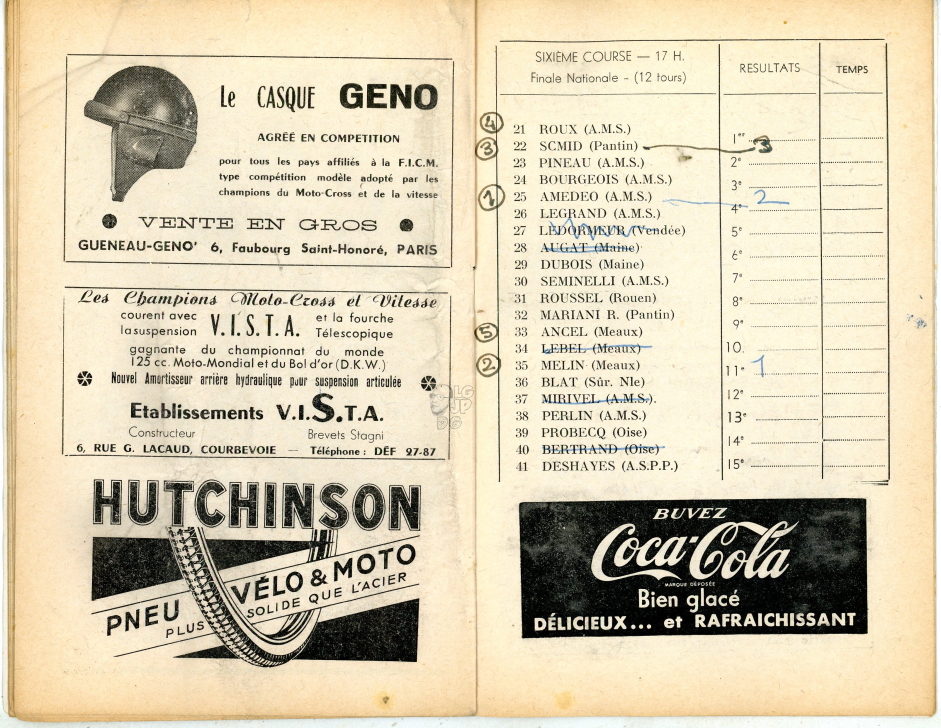 Le CASQUE GENO
AGRÉÉ EN COMPETITION
pour tous les pays affiliés à la F.I.C.M.
type compétition modèle adopté par les
champions du Moto-Cross et de la vitesse
VENTE EN GROS
GUENEAU-GENO' 6, Faubourg Saint-Honoré, PARIS
Les Champions Moto-Cross et Vitesse
courent avec la suspension V.I.S.T.A. et la fourche Télescopique
gagnante du championnat du monde
125 cc. Moto-Mondial et du Bol d'or (D.K.W.)
Nouvel Amortisseur arrière hydraulique pour suspension articulée
Etablissements V.I.S.T.A.
Constructeur Brevets Stagni
6, RUE G. LACAUD, COURBEVOIE — Téléphone : DÉF 27-87
HUTCHINSON
PNEU VÉLO & MOTO
PLUS SOLIDE QUE L'ACIER
SIXIÈME COURSE — 17 H.
Finale Nationale - (12 tours)
RESULTATS
TEMPS
4 21 ROUX (A.M.S.)
3 22 SCMID (Pantin) 3
23 PINEAU (A.M.S.)
24 BOURGEOIS (A.M.S.)
1 25 AMEDEO (A.M.S.) 2
26 LEGRAND (A.M.S.)
27 LEDORMEUR (Vendée)
28 AUGAT (Maine)
29 DUBOIS (Maine)
30 SEMINELLI (A.M.S.)
31 ROUSSEL (Rouen)
32 MARIANI R. (Pantin)
5 33 ANCEL (Meaux)
34 LEBEL (Meaux)
2 35 MELIN (Meaux) 1
36 BLAT (Sûr. Nle)
37 MIRIVEL (A.M.S.).
38 PERLIN (A.M.S.)
39 PROBECQ (Oise)
40 BERTRAND (Oise)
41 DESHAYES (A.S.P.P.)
1er
2e
3e
4e
5e
6e
7e
8e
9e
10.
11e
12e
13e
14e
15e
BUVEZ
Coca-Cola
MARQUE DÉPOSÉE
Bien glacé
DÉLICIEUX... et RAFRAICHISSANT